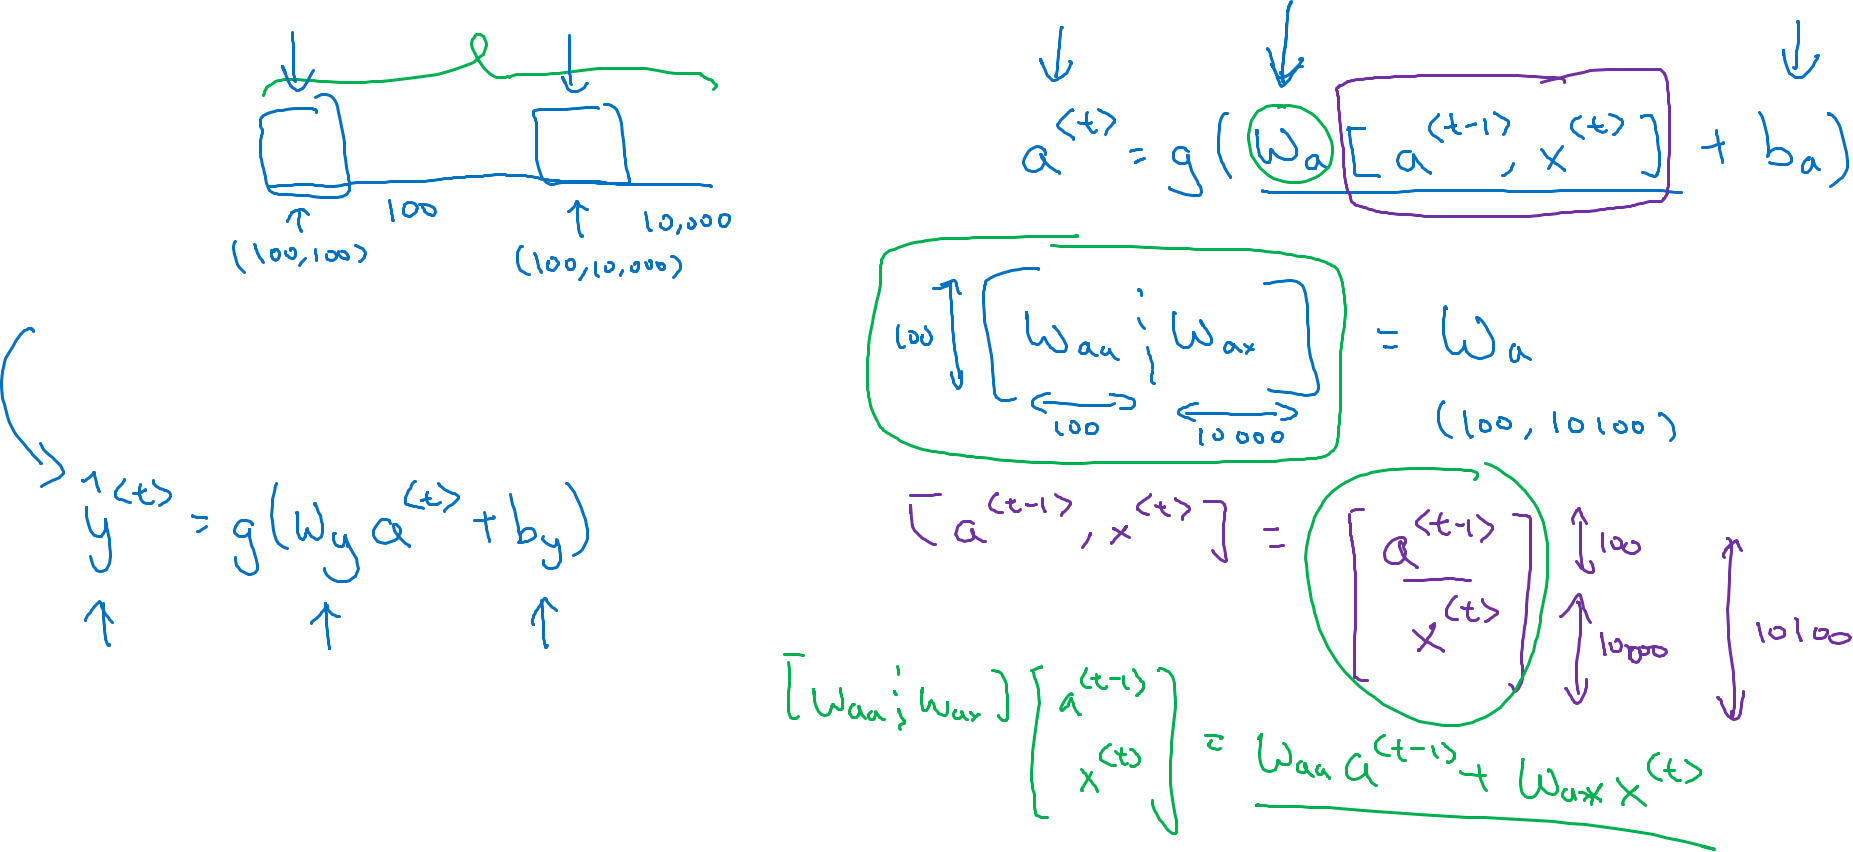 100 10,000
(100,100) (100,10,000)
ŷ^<t> = g(W_y a^<t> + b_y)
a^<t> = g(W_a [a^<t-1>, x^<t>] + b_a)
100 [W_aa ¦ W_ax] = W_a
100 10000 (100, 10100)
[a^<t-1>, x^<t>] = [a^<t-1> / x^<t>] 100 10,000 10100
[W_aa ¦ W_ax] [a^<t-1> x^<t>] = W_aa a^<t-1> + W_ax x^<t>